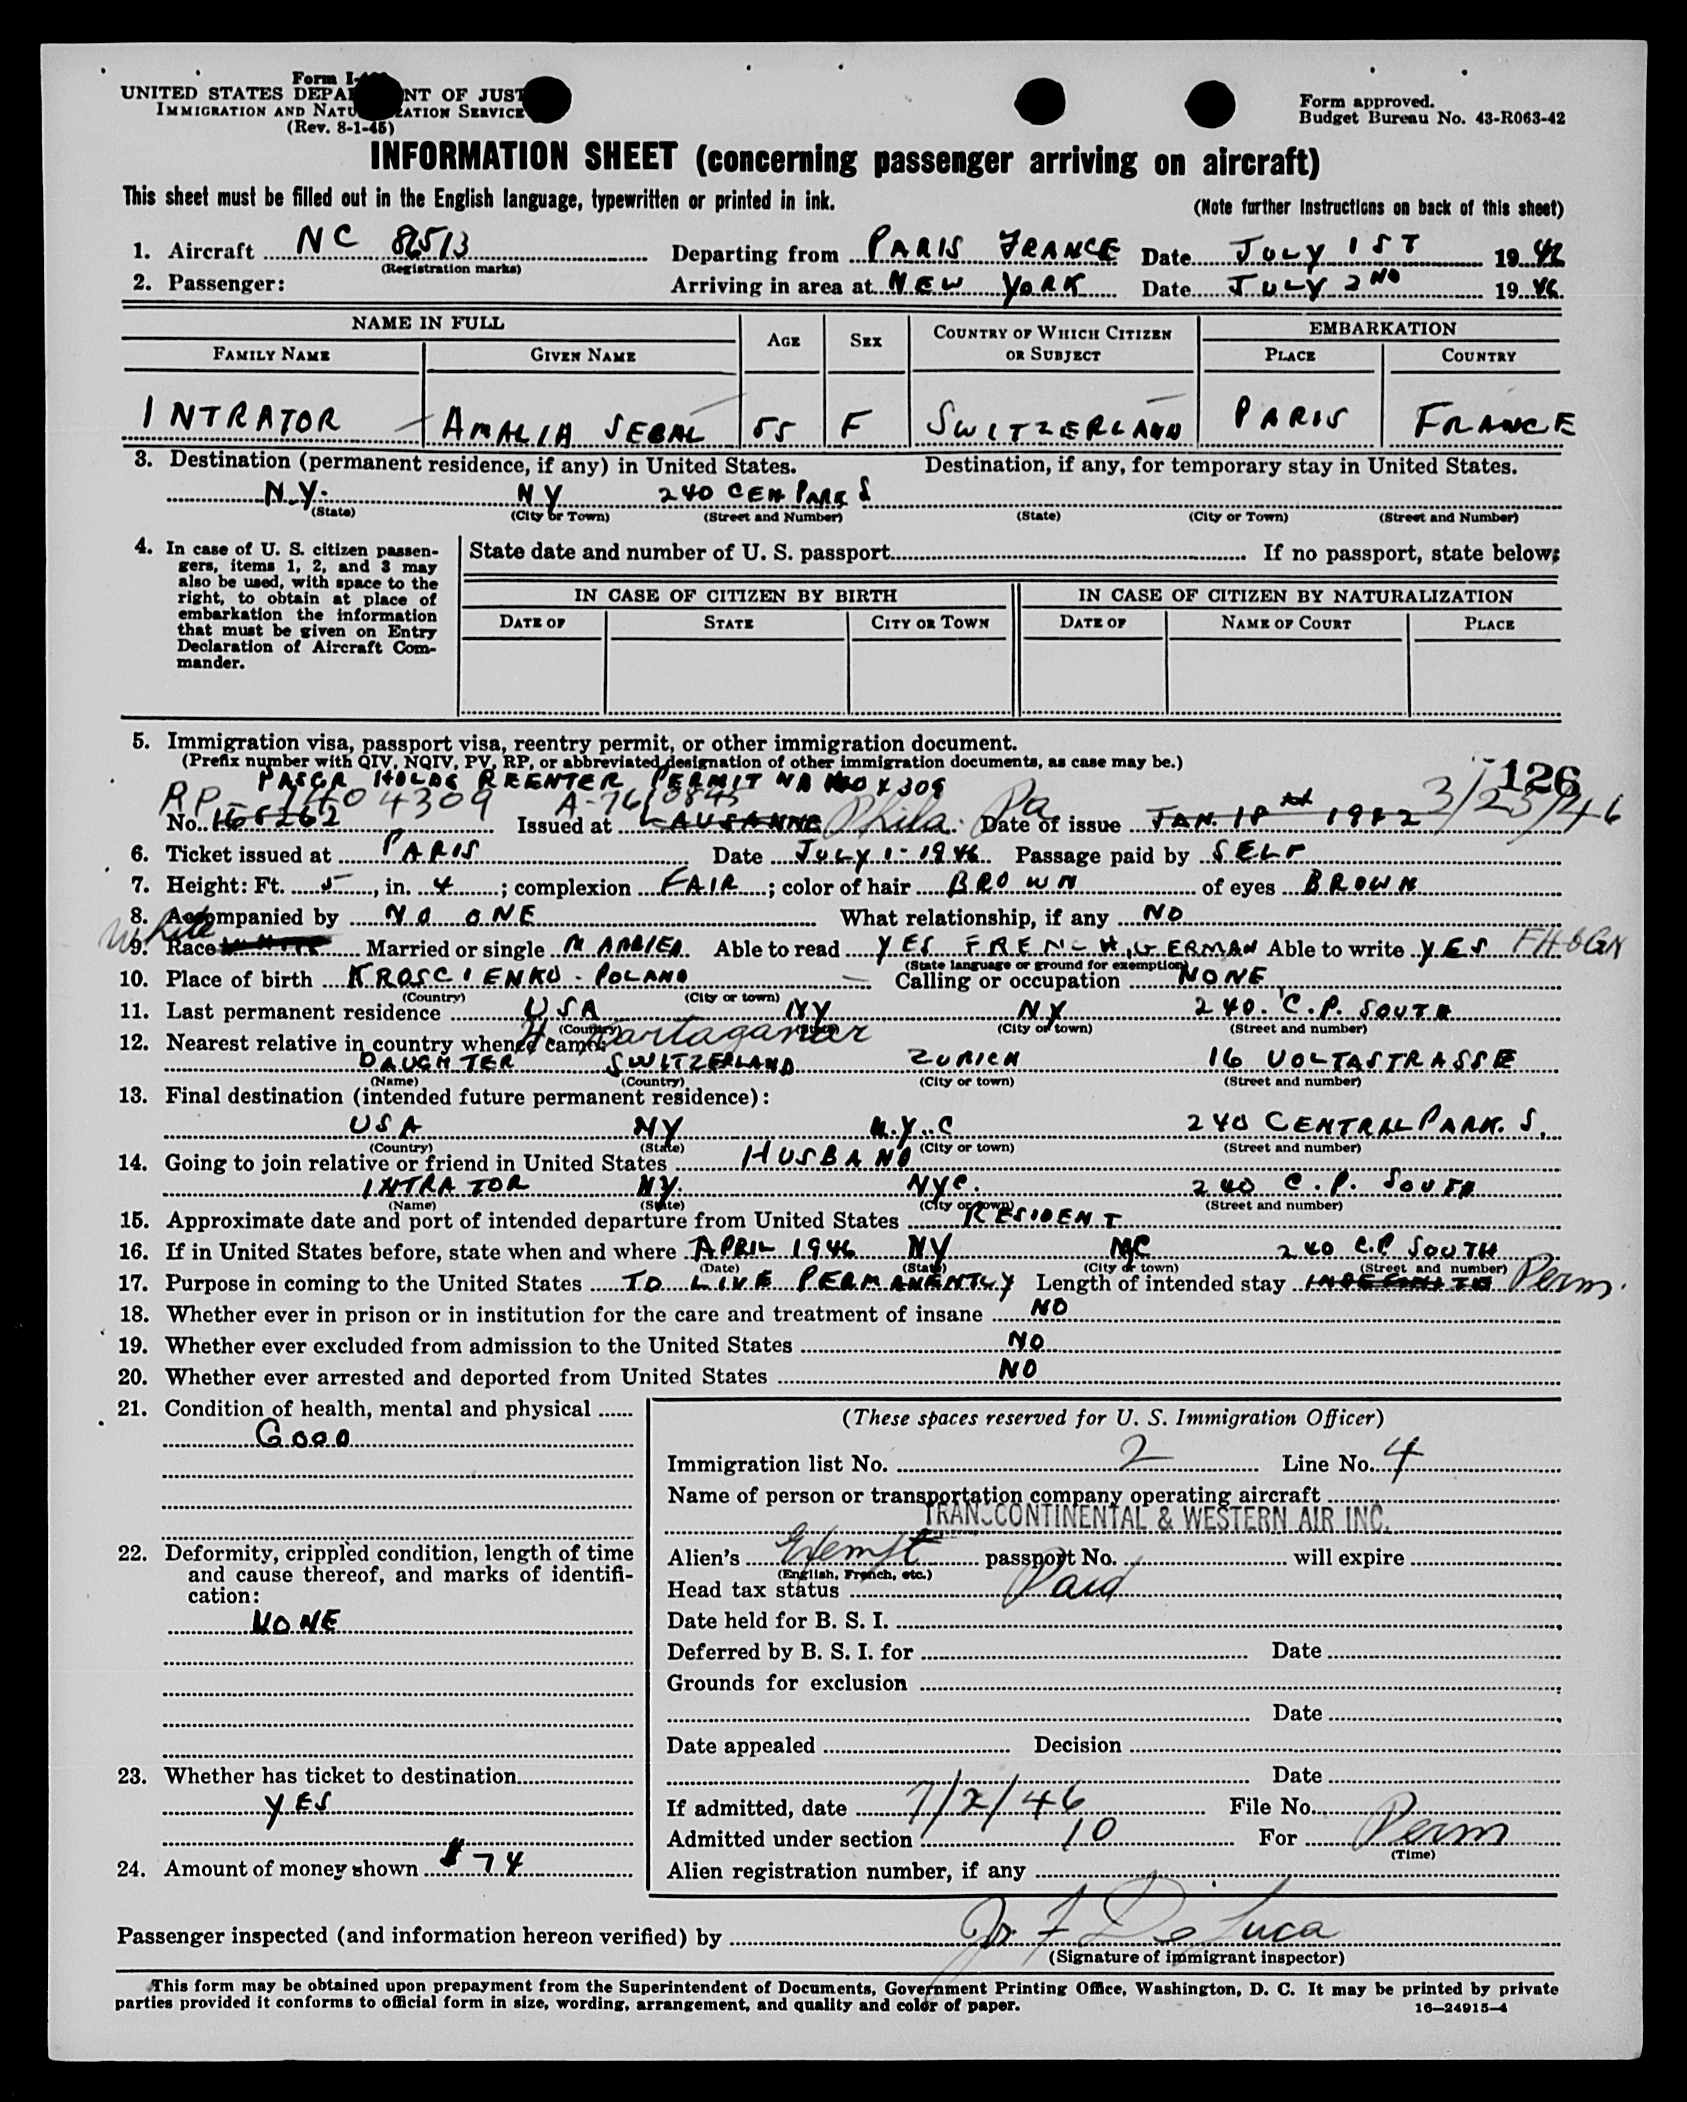 Form I-
UNITED STATES DEPA NT OF JUST
IMMIGRATION AND NATU ZATION SERVICE
(Rev. 8-1-45)
Form approved.
Budget Bureau No. 43-R063-42
INFORMATION SHEET (concerning passenger arriving on aircraft)
This sheet must be filled out in the English language, typewritten or printed in ink.
(Note further instructions on back of this sheet)
1. Aircraft NC 86513 Departing from PARIS FRANCE Date JULY 1ST 1946
(Registration marks)
2. Passenger: Arriving in area at NEW YORK Date JULY 2ND 1946.
NAME IN FULL AGE SEX COUNTRY OF WHICH CITIZEN OR SUBJECT EMBARKATION
FAMILY NAME GIVEN NAME PLACE COUNTRY
INTRATOR AMALIA SEBAL 55 F SWITZERLAND PARIS FRANCE
3. Destination (permanent residence, if any) in United States. Destination, if any, for temporary stay in United States.
N.Y. NY 240 CEN PARK S
(State) (City or Town) (Street and Number) (State) (City or Town) (Street and Number)
4. In case of U. S. citizen passen-
gers, items 1, 2, and 3 may
also be used, with space to the
right, to obtain at place of
embarkation the information
that must be given on Entry
Declaration of Aircraft Com-
mander.
State date and number of U. S. passport If no passport, state below:
IN CASE OF CITIZEN BY BIRTH IN CASE OF CITIZEN BY NATURALIZATION
DATE OF STATE CITY OR TOWN DATE OF NAME OF COURT PLACE
5. Immigration visa, passport visa, reentry permit, or other immigration document.
(Prefix number with QIV, NQIV, PV, RP, or abbreviated designation of other immigration documents, as case may be.)
126
PASGR HOLDS REENTER PERMIT
RP- 1404309 A-7610845
No. 168262 Issued at LAUSANNE Phila. Pa Date of issue JAN. 18 1942 3/25/46
6. Ticket issued at PARIS Date JULY 1-1946 Passage paid by SELF
7. Height: Ft. 5, in. 4; complexion FAIR; color of hair BROWN of eyes BROWN
8. Accompanied by NO ONE What relationship, if any NO
White
9. Race WHITE Married or single MARRIED Able to read YES FRENCH, GERMAN Able to write YES
(State language or ground for exemption)
10. Place of birth KROSCIENKO - POLAND Calling or occupation NONE
(Country) (City or town)
11. Last permanent residence USA NY NY 240. C.P. SOUTH
(Country) (State) (City or town) (Street and number)
12. Nearest relative in country whence came
DAUGHTER SWITZERLAND ZURICH 16 VOLTASTRASSE
(Name) (Country) (City or town) (Street and number)
13. Final destination (intended future permanent residence):
USA NY N.Y.C 240 CENTRAL PARK. S.
(Country) (State) (City or town) (Street and number)
14. Going to join relative or friend in United States HUSBAND
INTRATOR NY. NYC. 240 C.P. SOUTH
(Name) (State) (City or town) (Street and number)
15. Approximate date and port of intended departure from United States RESIDENT
16. If in United States before, state when and where APRIL 1946 NY NYC 240 C.P SOUTH
(Date) (State) (City or town) (Street and number)
17. Purpose in coming to the United States TO LIVE PERMANENTLY Length of intended stay INDEFINITE Perm.
18. Whether ever in prison or in institution for the care and treatment of insane NO
19. Whether ever excluded from admission to the United States NO
20. Whether ever arrested and deported from United States NO
21. Condition of health, mental and physical
GOOD
22. Deformity, crippled condition, length of time
and cause thereof, and marks of identifi-
cation:
NONE
23. Whether has ticket to destination
YES
24. Amount of money shown $74
(These spaces reserved for U. S. Immigration Officer)
Immigration list No. 2 Line No. 4
Name of person or transportation company operating aircraft
TRANSCONTINENTAL & WESTERN AIR INC.
Alien's Exempt passport No. will expire
(English, French, etc.)
Head tax status Paid
Date held for B. S. I.
Deferred by B. S. I. for Date
Grounds for exclusion
Date
Date appealed Decision
Date
If admitted, date 7/2/46 File No.
Admitted under section 10 For Perm
(Time)
Alien registration number, if any
Passenger inspected (and information hereon verified) by Jr F De Luca
(Signature of immigrant inspector)
This form may be obtained upon prepayment from the Superintendent of Documents, Government Printing Office, Washington, D. C. It may be printed by private
parties provided it conforms to official form in size, wording, arrangement, and quality and color of paper.
16—24915-4